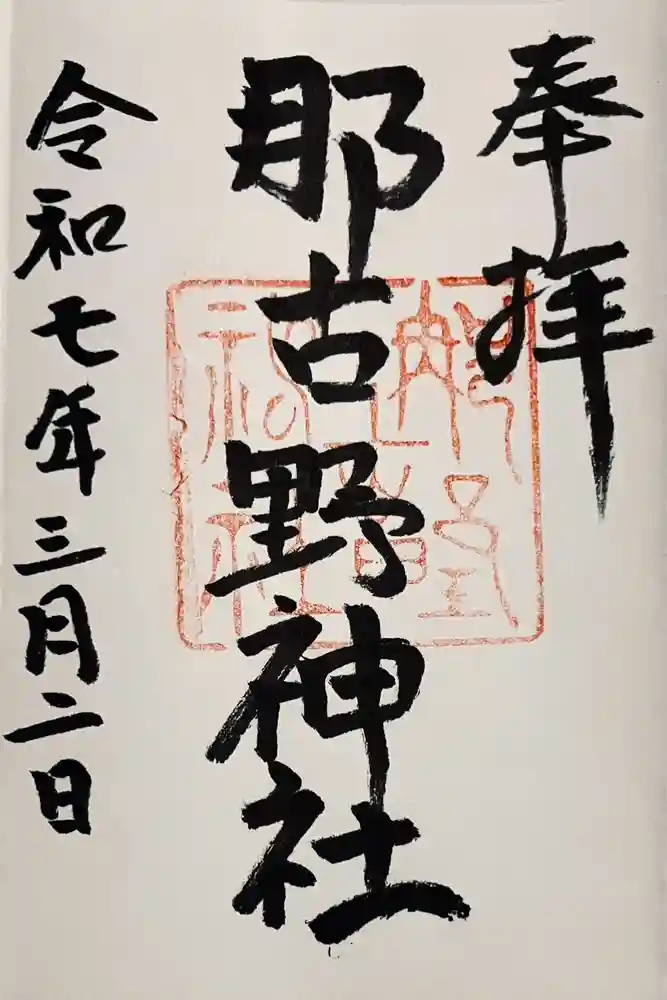 奉拝
那古野神社
令和七年三月二日